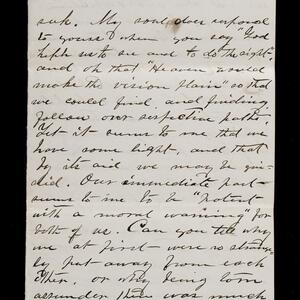 sak. My soul does respond
to yours & when you say "God
help us to see and to do the right",
and oh that "Heaven would
make the vision plain" so that
we could find, and finding,
follow our respective paths.
Yet it seems to me that we
have some light, and that
by its aid we may be gui-
ded. Our immediate past
seems to me to be "potent
with a moral warning" for
both of us. Can you tell why
we at first were so strange-
ly put away from each
other, or why being torn
asunder there was much